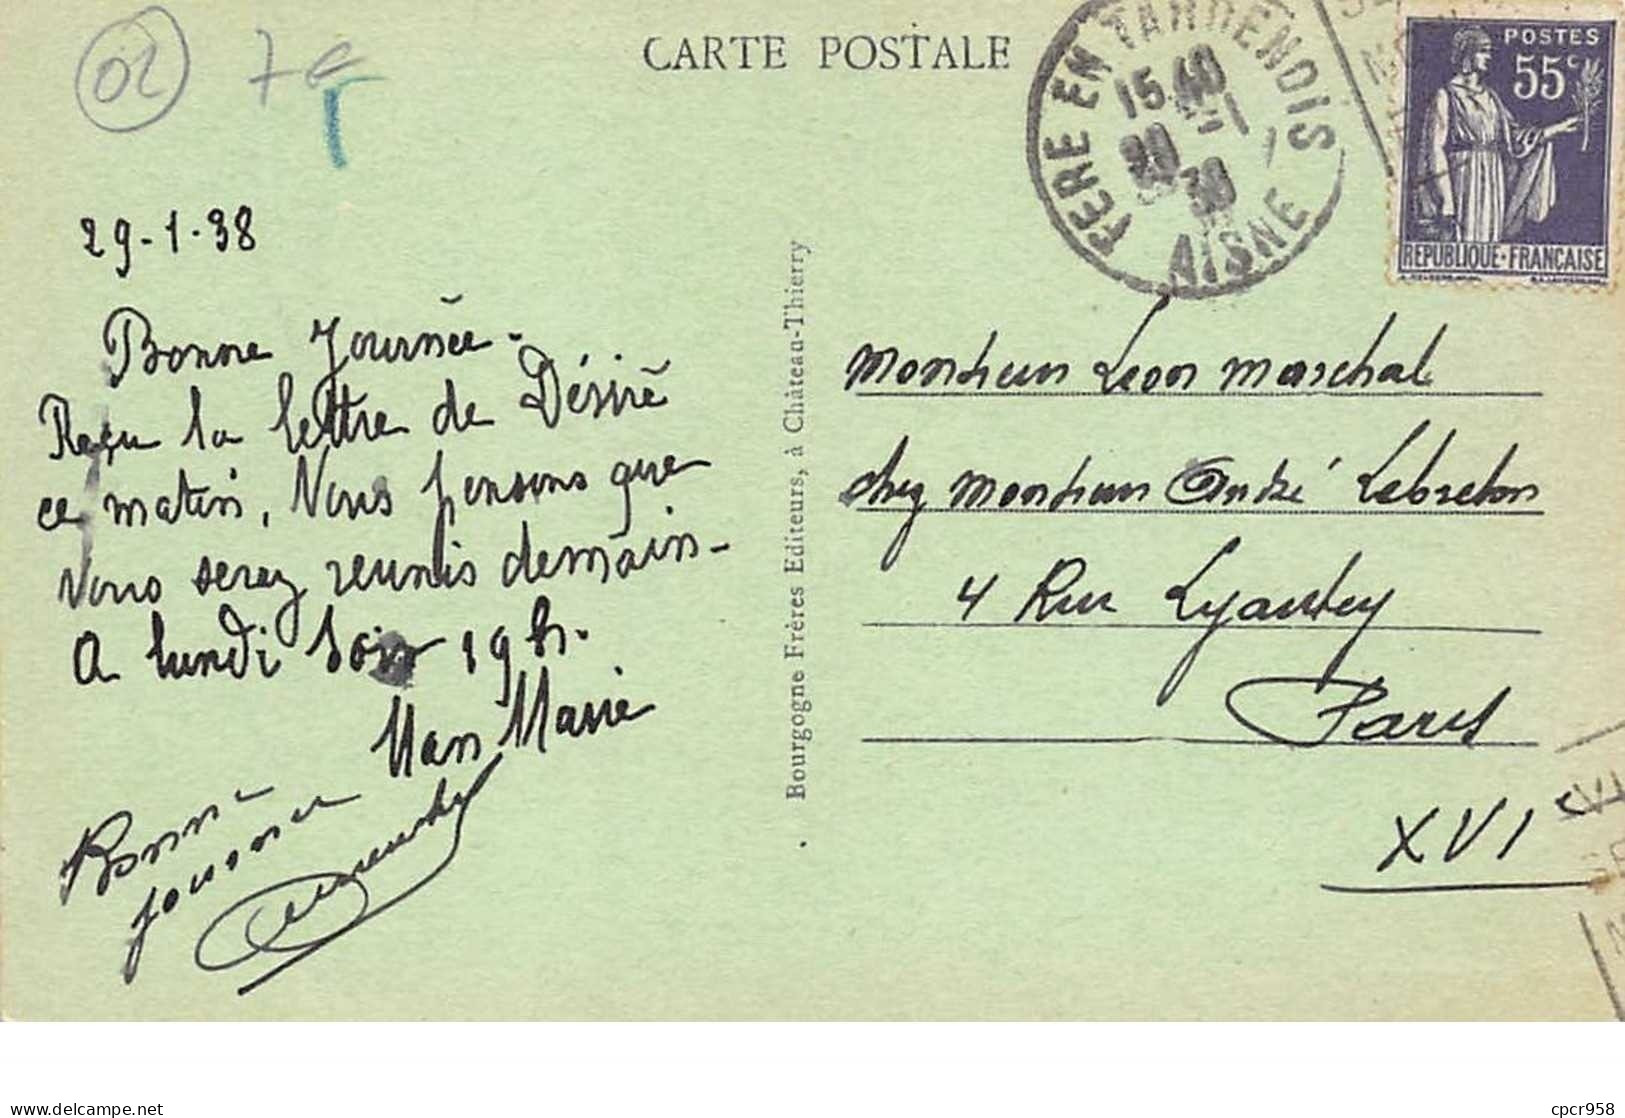 02
CARTE POSTALE
FERE EN TARDENOIS
15 40
AISNE
POSTES
55c
REPUBLIQUE-FRANCAISE
29-1-38
Bonne Journée-
Reçu la lettre de Désiré
ce matin, Nous pensons que
Vous serez reunis demain-
A lundi Soir 19 h.
Marie
Bonne
journée
Bourgogne Frères Editeurs, à Château-Thierry
Monsieur Leon Marchal
chez Monsieur André Lebreton
4 Rue Lyautey
Paris
XVI
cpcr958